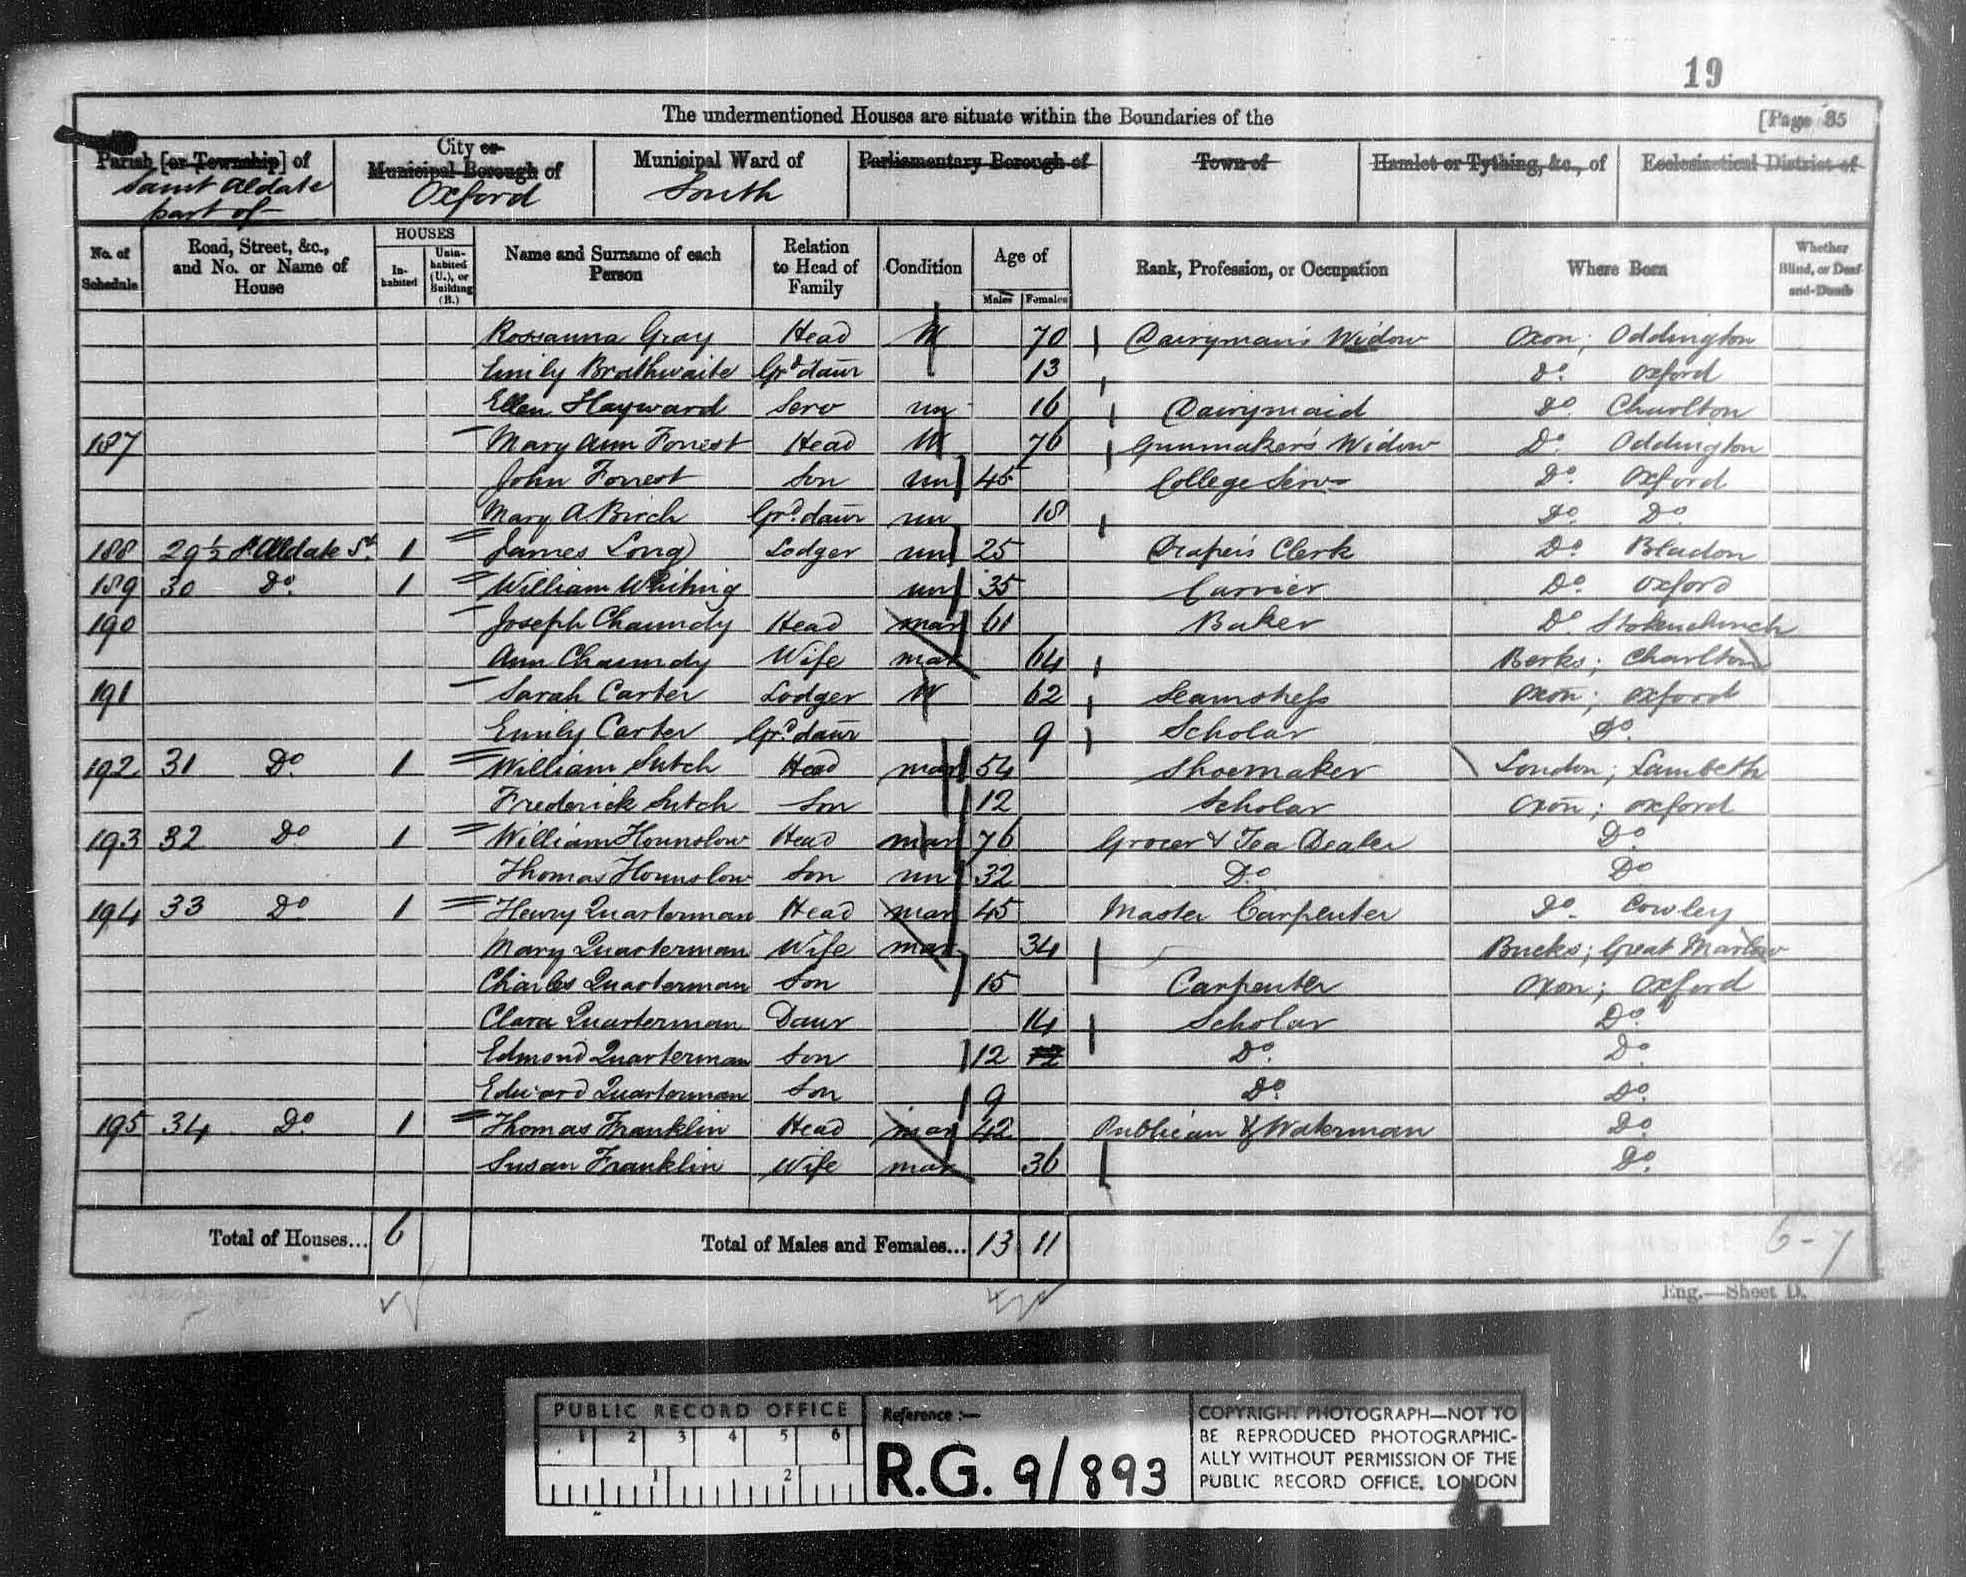 19
The undermentioned Houses are situate within the Boundaries of the [Page 35
Parish [or Township] of City or Municipal Borough of Municipal Ward of Parliamentary Borough of Town of Hamlet or Tything, &c., of Ecclesiastical District of
Saint Aldate part of Oxford South
No. of Schedule Road, Street, &c., and No. or Name of House HOUSES Inhabited Uninhabited (U.), or Building (B.) Name and Surname of each Person Relation to Head of Family Condition Age of Males Females Rank, Profession, or Occupation Where Born Whether Blind, or Deaf-and-Dumb
Rossanna Gray Head W 70 Dairyman's Widow Oxon; Oddington
Emily Brathwaite Grd daur 13 Do Oxford
Ellen Hayward Serv un 16 Dairymaid Do Charlton
187 Mary Ann Forrest Head W 76 Gunmaker's Widow Do Oddington
John Forrest Son un 45 College Serv Do Oxford
Mary A Birch Grd daur un 18 Do Do
188 29½ St Aldate St 1 James Long Lodger un 25 Draper's Clerk Do Bladon
189 30 Do 1 William Whiting un 35 Carrier Do Oxford
190 Joseph Chaundy Head mar 61 Baker Do Stokenchurch
Ann Chaundy Wife mar 64 Berks; Charlton
191 Sarah Carter Lodger W 62 Seamstress Oxon; Oxford
Emily Carter Grd daur 9 Scholar Do
192 31 Do 1 William Sutch Head mar 54 Shoemaker London; Lambeth
Frederick Sutch Son 12 Scholar Oxon; Oxford
193 32 Do 1 William Hounslow Head mar 76 Grocer & Tea Dealer Do
Thomas Hounslow Son un 32 Do Do
194 33 Do 1 Henry Quarterman Head mar 45 Master Carpenter Do Cowley
Mary Quarterman Wife mar 34 Bucks; Great Marlow
Charles Quarterman Son 15 Carpenter Oxon; Oxford
Clara Quarterman Daur 14 Scholar Do
Edmond Quarterman Son 12 12 Do Do
Edward Quarterman Son 9 Do Do
195 34 Do 1 Thomas Franklin Head mar 42 Publican & Waterman Do
Susan Franklin Wife mar 36 Do
Total of Houses... 6 Total of Males and Females... 13 11 6-7
Eng.—Sheet D.
PUBLIC RECORD OFFICE
1 2 3 4 5 6
1 2
Reference :—
R.G. 9/893
COPYRIGHT PHOTOGRAPH—NOT TO
BE REPRODUCED PHOTOGRAPHIC-
ALLY WITHOUT PERMISSION OF THE
PUBLIC RECORD OFFICE, LONDON